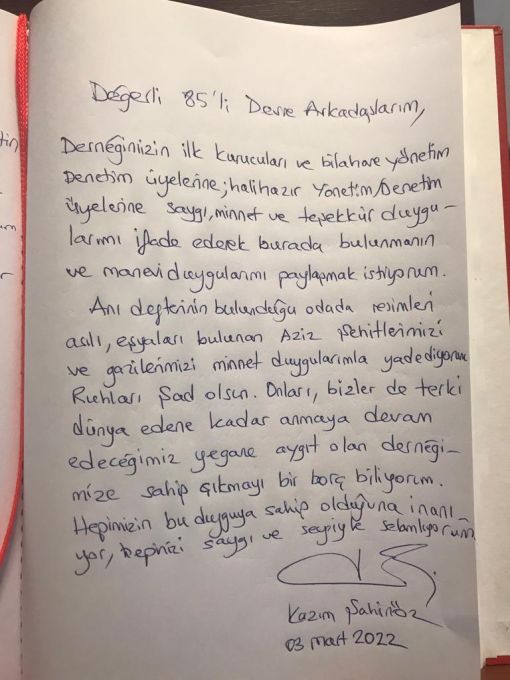 Değerli 85'li Devre Arkadaşlarım,
Derneğinizin ilk kurucuları ve bilahare yönetim
Denetim üyelerine; halihazır Yönetim/Denetim
üyelerine saygı, minnet ve teşekkür duygu-
larımı ifade ederek burada bulunmanın
ve manevi duygularımı paylaşmak istiyorum.
Anı defterinin bulunduğu odada resimleri
asılı, eşyaları bulunan Aziz Şehitlerimizi
ve gazilerimizi minnet duygularımla yadediyorum
Ruhları Şad olsun. Onları, bizler de terki
dünya edene kadar anmaya devam
edeceğimiz yegane aygıt olan derneği-
mize sahip çıkmayı bir borç biliyorum.
Hepimizin bu duyguya sahip olduğuna inanı-
yor, hepinizi saygı ve sevgiyle selamlıyorum
Kazım Şahinöz
03 Mart 2022